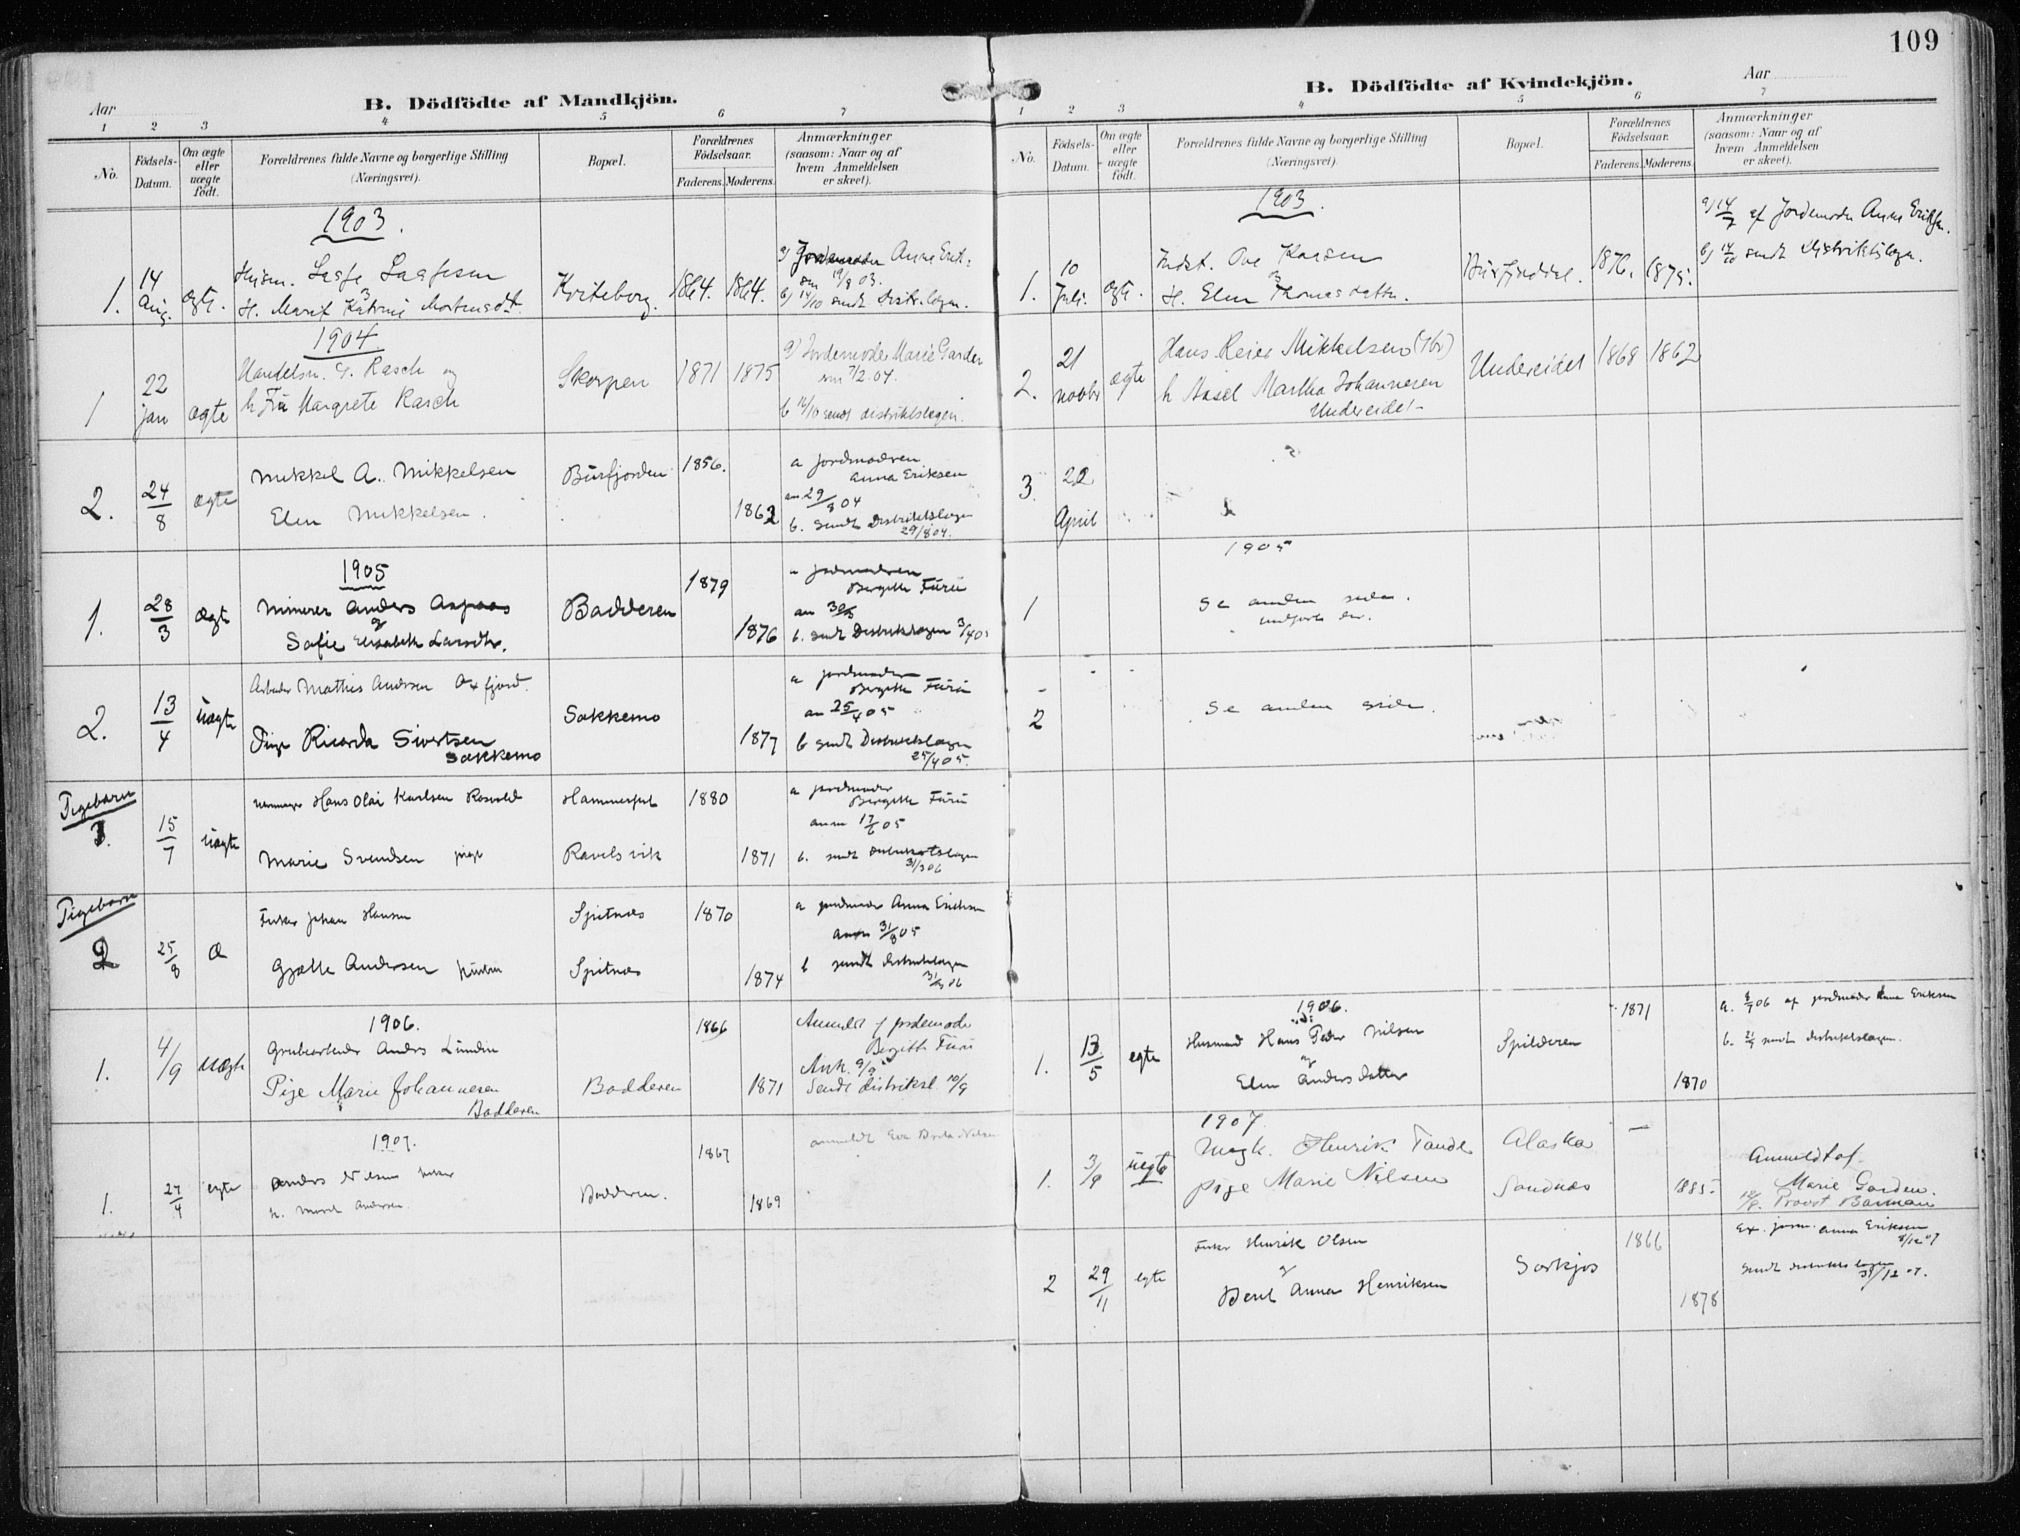 109
Aar
B. Dödfödte af Mandkjön.
1 2 3 4 5 6 7
No.
Födsels-Datum.
Om ægte eller uægte födt.
Forældrenes fulde Navne og borgerlige Stilling (Næringsvei).
Bopæl.
Forældrenes Födselsaar.
Faderens. Moderens.
Anmærkninger (saasom: Naar og af hvem Anmeldelsen er skeet).
1903.
1. 14 Aug. ægt.
H. Marit Katrine Mortensdt.
Kviteborg. 1864. 1864.
a) Jordemoder Anne Erik-
sen 19/8 03.
b) 14/10 sendt Distr.lægen.
1904
1 22 jan ægte
Handelsm. G. Rasch og
h. Fru Margrete Rasch
Skorpen 1871 1875
a) Jordemoder Marie Garden
7/2.04.
b 14/10 sendt distriktslægen.
2. 24/8 ægte
Mikkel A. Mikkelsen
Elen Mikkelsen.
Burfjorden 1856. 1862
a jordmoderen
Anna Eriksen
an. 29/8 04
b. sendt Distriktslægen
29/8 04.
1905
1. 28/3 ægt
Minerer Anders Aspaas
og
Sofie Elisabeth Larsdtr.
Badderen 1879 1876
a jordmoderen
Bergitte Furu
an 30/3
b. sendt Distriktslægen 3/4 05
2. 13/4 uægte
Arbeider Mathis Andersen Oxfjord.
Pige Ricarda Sivertsen
Sakkemo
Sakkemo 1877
a jordmoder
Bergitte Furu
an 25/4 05
b sendt Distriktslægen
25/4 05.
Pigebarn
1. 15/7 uægte
Hans Olai Karlsen
Marie Svendsen pige
Hammerfest
Ravelsvik
1880 1871
a jordmoder
Bergitte Furu
anm 17/6 05
b. sendt distriktslægen
31/3 06
Pigebarn
2 25/8 Æ
Fisker Johan Hansen
Gjætte Andersen
Spitnæs
Spitnæs
1870 1874
a jordmoder Anna Eriksen
anm 31/8 05
b sendt distriktslægen
31/3 06
1906.
1. 4/9 uægte
Grubearbeider Anders Lundin
Pige Marie Johannesen
Badderen
Badderen
1866 1871
Anmeldt af jordemoder
Bergitte Furu
Ank. 9/9
Sendt distriktsl 10/9
1907.
1. 27/4 egte
Anders Nilsen fisker
h. Marit Andersen.
Badderen.
1867 1869
anmeldt Eva Nilsen
Aar
B. Dödfödte af Kvindekjön.
1 2 3 4 5 6 7
No.
Födsels-Datum.
Om ægte eller uægte födt.
Forældrenes fulde Navne og borgerlige Stilling (Næringsvei).
Bopæl.
Forældrenes Födselsaar.
Faderens. Moderens.
Anmærkninger (saasom: Naar og af hvem Anmeldelsen er skeet).
1903.
1. 10 Juli. ægt.
Indst. Ove Kaasen
H. Elen Thomasdatter.
Burfjorddal. 1876. 1875.
a) 14/7 af Jordemoder Anna Eriksen.
b) 14/10 sendt Distriktslægen.
2. 21 novbr ægte
Hans Reier Mikkelsen
h Aasel Martha Johannesen
Undereidet
Undereidet 1868 1862
3. 22 April
1905
1 Se anden side.
indført der.
2 Se anden side.
1906.
1. 13/5 egte
Husmand Hans Peder Nilsen
og
Elen Andersdatter
Spilderen
1871 1870
a. 8/7 06 af jordmoder Anna Eriksen
b. 21/7 sendt distriktslægen.
1907.
1. 3/9 uegte
Henrik Tande
pige Marie Nilsen
Alaska —
Sandnæs 1885.
Anmeldt af
Marie Garden.
12/9. Provst Barman
2 29/11 egte
Fisker Henrik Olsen
og
Berit Anna Henriksen
Sørkjos
1866 1878
jorm. Anna Eriksen
8/12 07
Sendt distriktslægen
31/12 07.